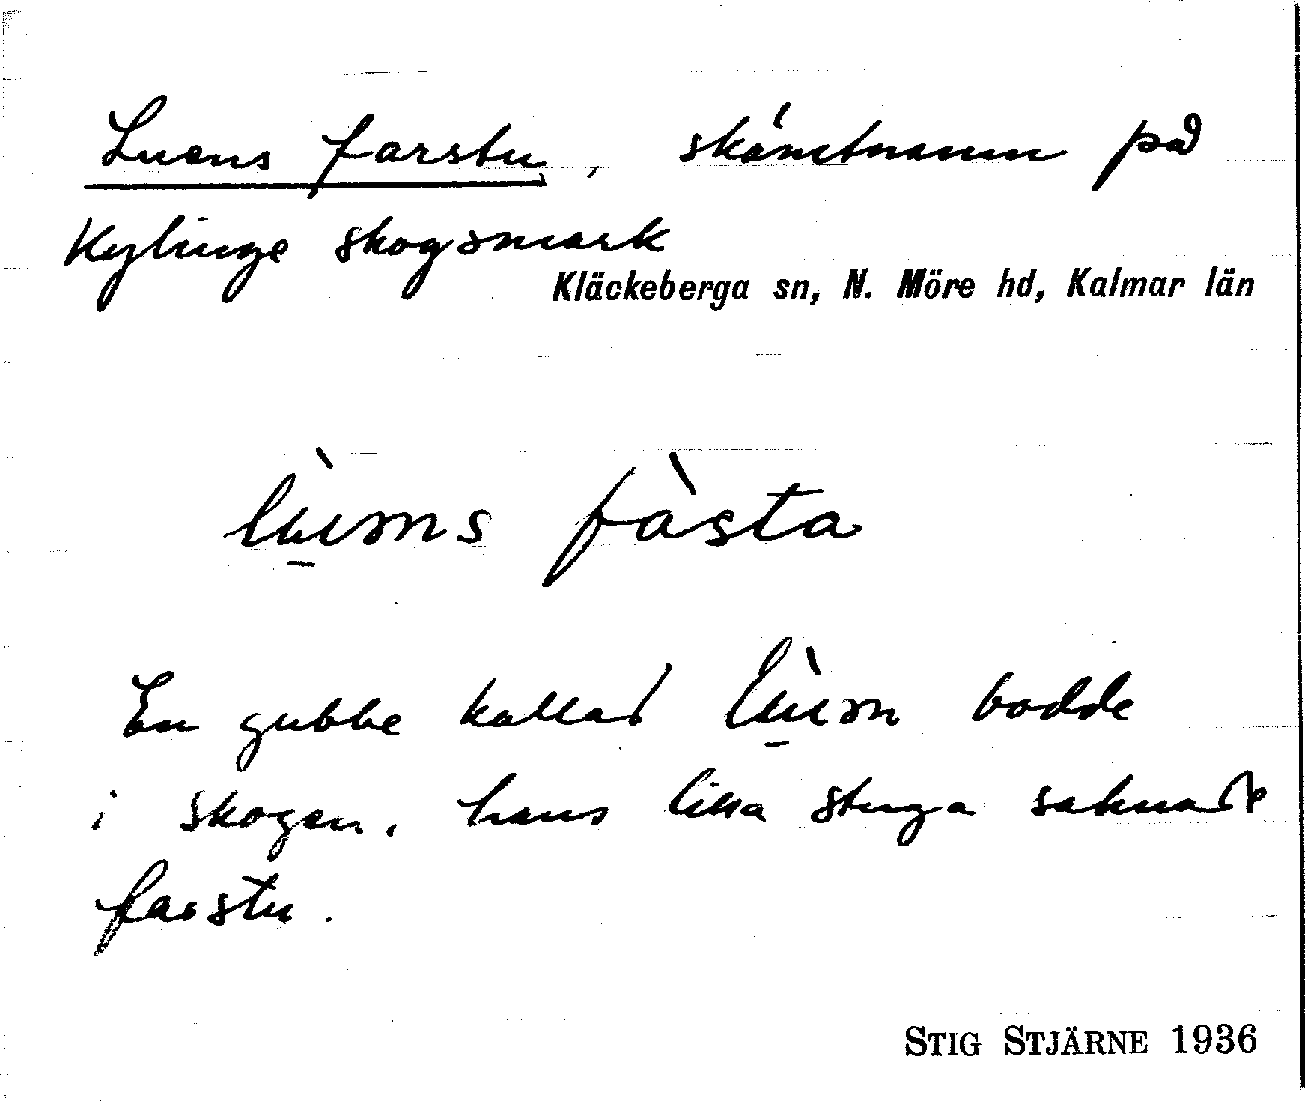 Luens farstu, skämtnamn på
Kylinge skogsmark
Kläckeberga sn, N. Möre hd, Kalmar län
fàsta
En gubbe kallad bodde
i skogen, hans lilla stuga saknade
farstu.
STIG STJÄRNE 1936